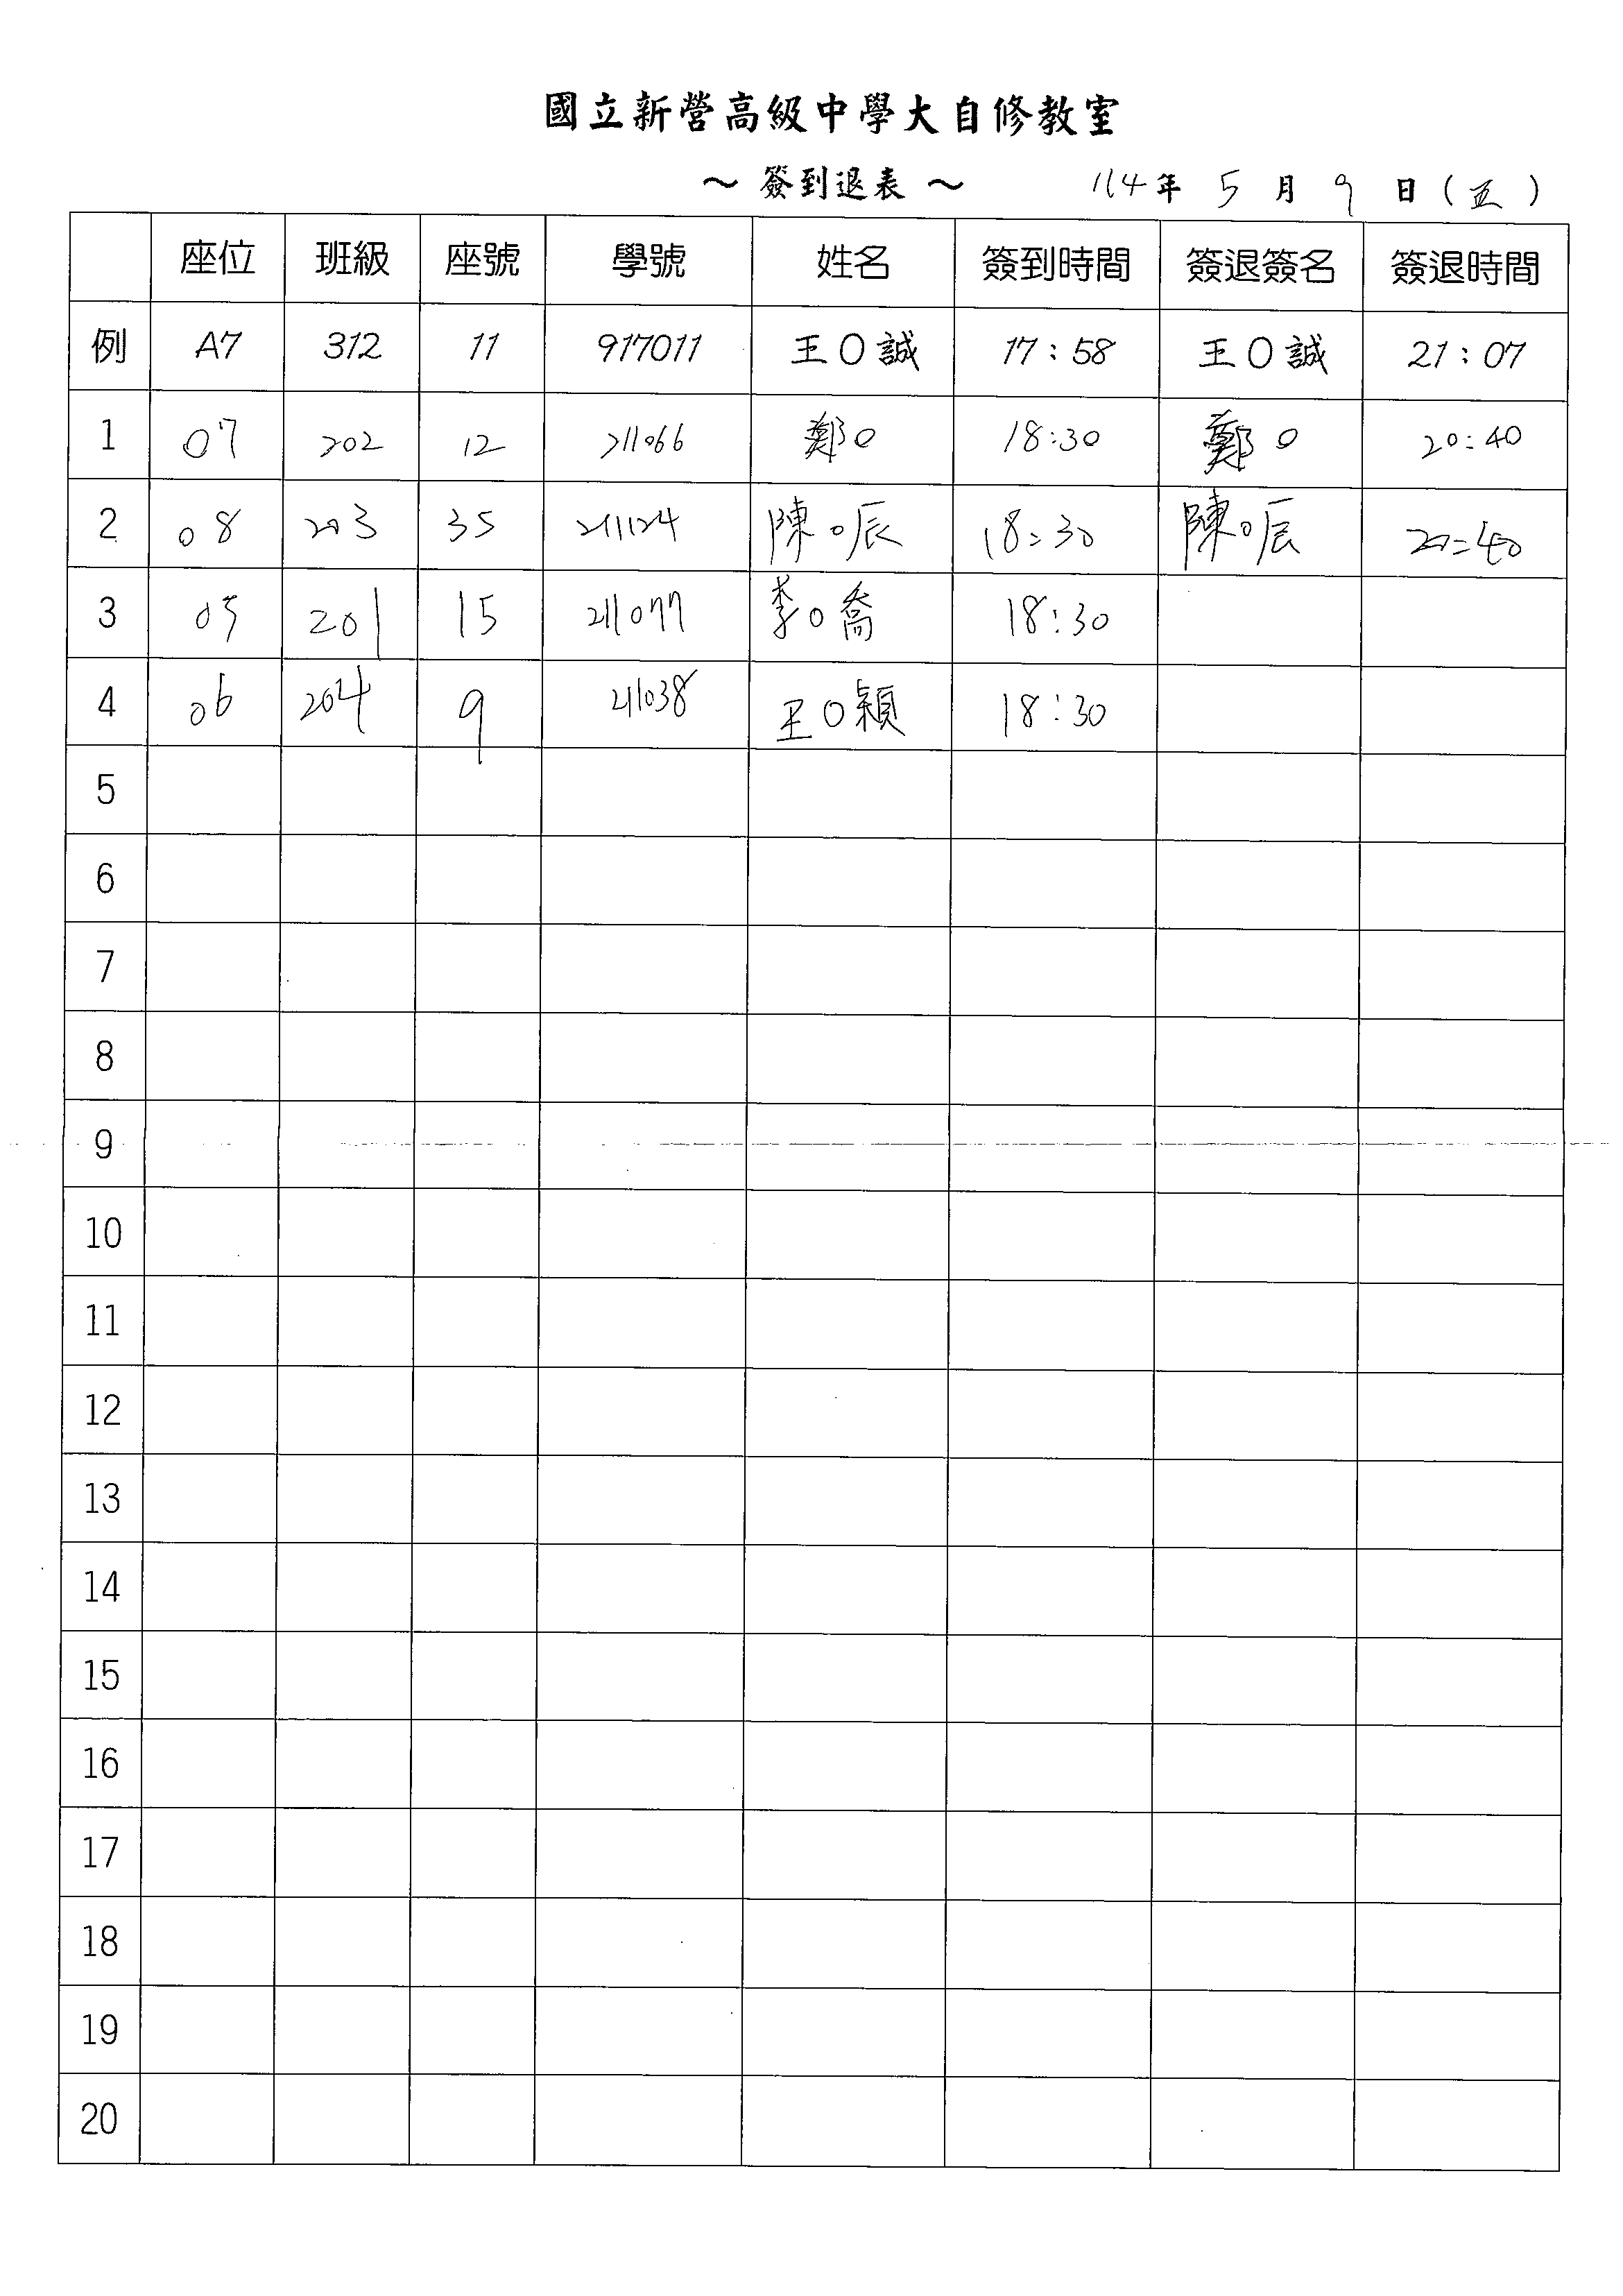 國立新營高級中學大自修教室
～ 簽到退表 ～ 114年 5 月 9 日(五)
座位 班級 座號 學號 姓名 簽到時間 簽退簽名 簽退時間
例 A7 312 11 917011 王O誠 17:58 王O誠 21:07
1 07 202 12 211066 鄭O 18:30 鄭O 20:40
2 08 203 35 211124 陳O辰 18:30 陳O辰 20:40
3 05 201 15 211077 李O喬 18:30
4 06 204 9 211038 王O穎 18:30
5
6
7
8
9
10
11
12
13
14
15
16
17
18
19
20